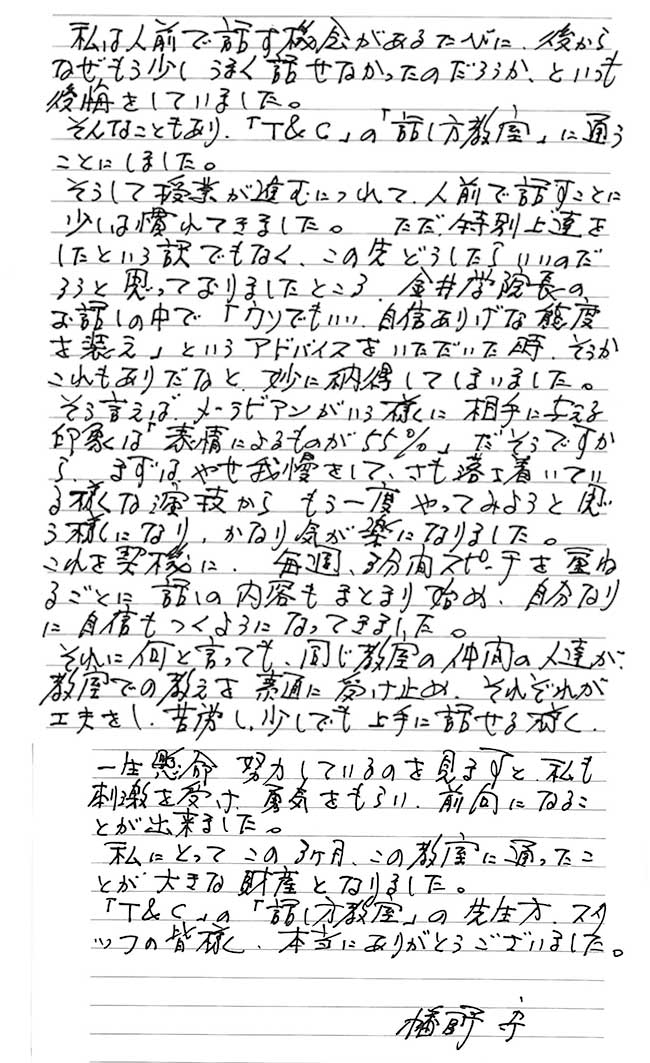 私は人前で話す機会があるたびに、後から
なぜもう少しうまく話せなかったのだろうか、といつも
後悔をしていました。
そんなこともあり、「T&C」の「話し方教室」に通う
ことにしました。
そうして授業が進むにつれて、人前で話すことに
少しは慣れてきました。 ただ、特別上達を
したという訳でもなく、この先どうしたらいいのだ
ろうと思っておりましたところ、金井学院長の
お話しの中で「ウソでもいい、自信ありげな態度
を装え」というアドバイスをいただいた時、そうか
これもありだなと、妙に納得してしまいました。
そう言えば、メーラビアンがいう様に 相手に与える
印象は「表情によるものが55%」だそうですか
ら、まずはやせ我慢をして、さも落ち着いてい
る様な演技から もう一度 やってみようと思
う様になり、かなり気が楽になりました。
これを契機に、毎週、3分間スピーチを重ね
るごとに 話しの内容もまとまり始め、自分なり
に自信もつくようになってきました。
それに何と言っても、同じ教室の仲間の人達が、
教室での教えを素直に受け止め、それぞれが
工夫をし、苦労し、少しでも上手に話せる様、
一生懸命 努力しているのを見ますと、私も
刺激を受け、勇気をもらい、前向になるこ
とが出来ました。
私にとってこの3ヶ月、この教室に通ったこ
とが大きな財産となりました。
「T&C」の「話し方教室」の先生方、スタ
ッフの皆様、本当にありがとうございました。